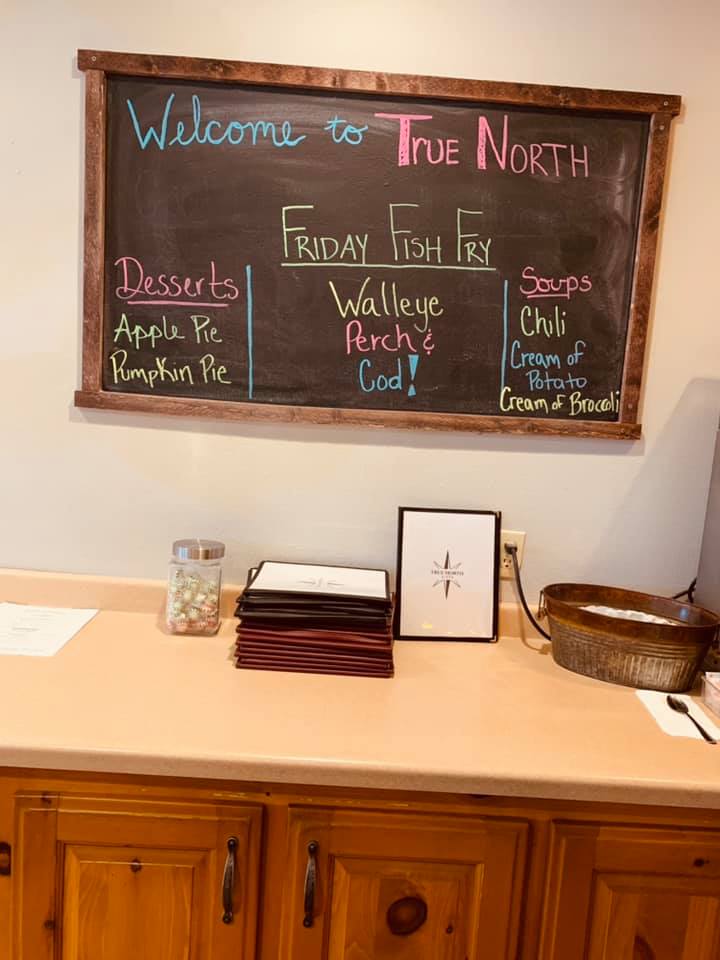 Welcome to TRUE NORTH
FRIDAY FISH FRY
Desserts
Apple Pie
Pumpkin Pie
Walleye
Perch &
Cod!
Soups
Chili
Cream of
Potato
Cream of Broccoli
TRUE NORTH